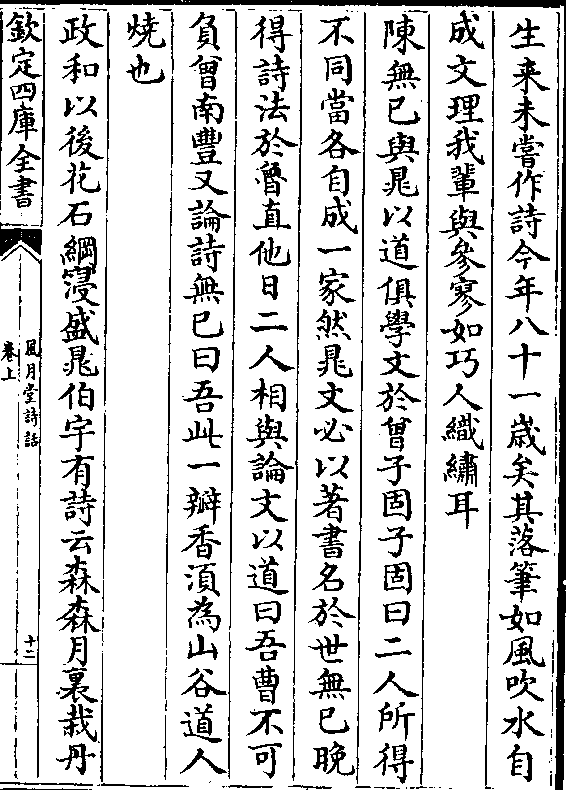 生来未嘗作詩今年八十一歳矣其落筆如風吹水自
成文理我輩與參寥如巧人織繡耳
陳無已與晁以道俱學文於曾子固子固曰二人所得
不同當各自成一家然晁文必以著書名於世無已晚
得詩法於魯直他日二人相與論文以道曰吾曹不可
負曾南豐又論詩無已曰吾此一瓣香湏為山谷道人
焼也
政和以後花石綱寖盛晁伯宇有詩云森森月裏栽丹
欽定四庫全書
風月堂詩話
卷上
十二